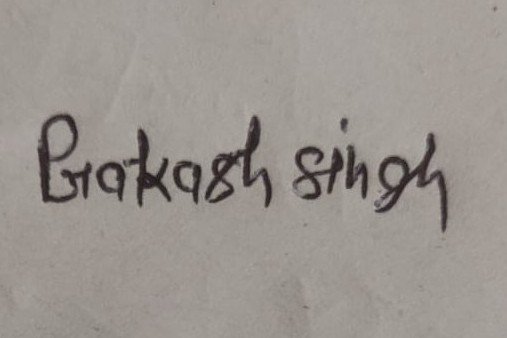 Prakash singh